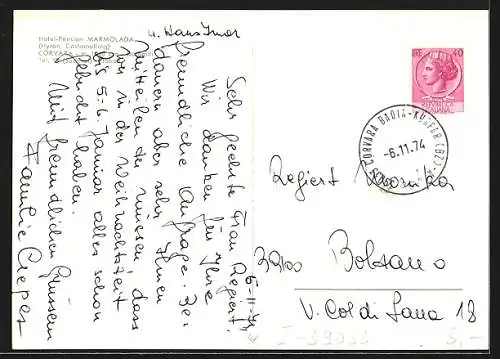 Hotel-Pension MARMOLADA
CORVARA
u. Hans Imor
Sehr geehrte Frau Regiert.
6-11-74
Wir danken für Ihre
freundliche Anfrage. Be-
dauern aber sehr Ihnen
mitteilen zu müssen, dass
wir in der Weihnachtszeit
bis 5-6 Januar alles schon
besetzt haben.
Mit freundlichen Grüssen
Familie Crepaz
40
CORVARA BADIA-KURFAR (BZ)
-6.11.74
Regiert Monika
39100 Bolzano
V. Col di Lana 18